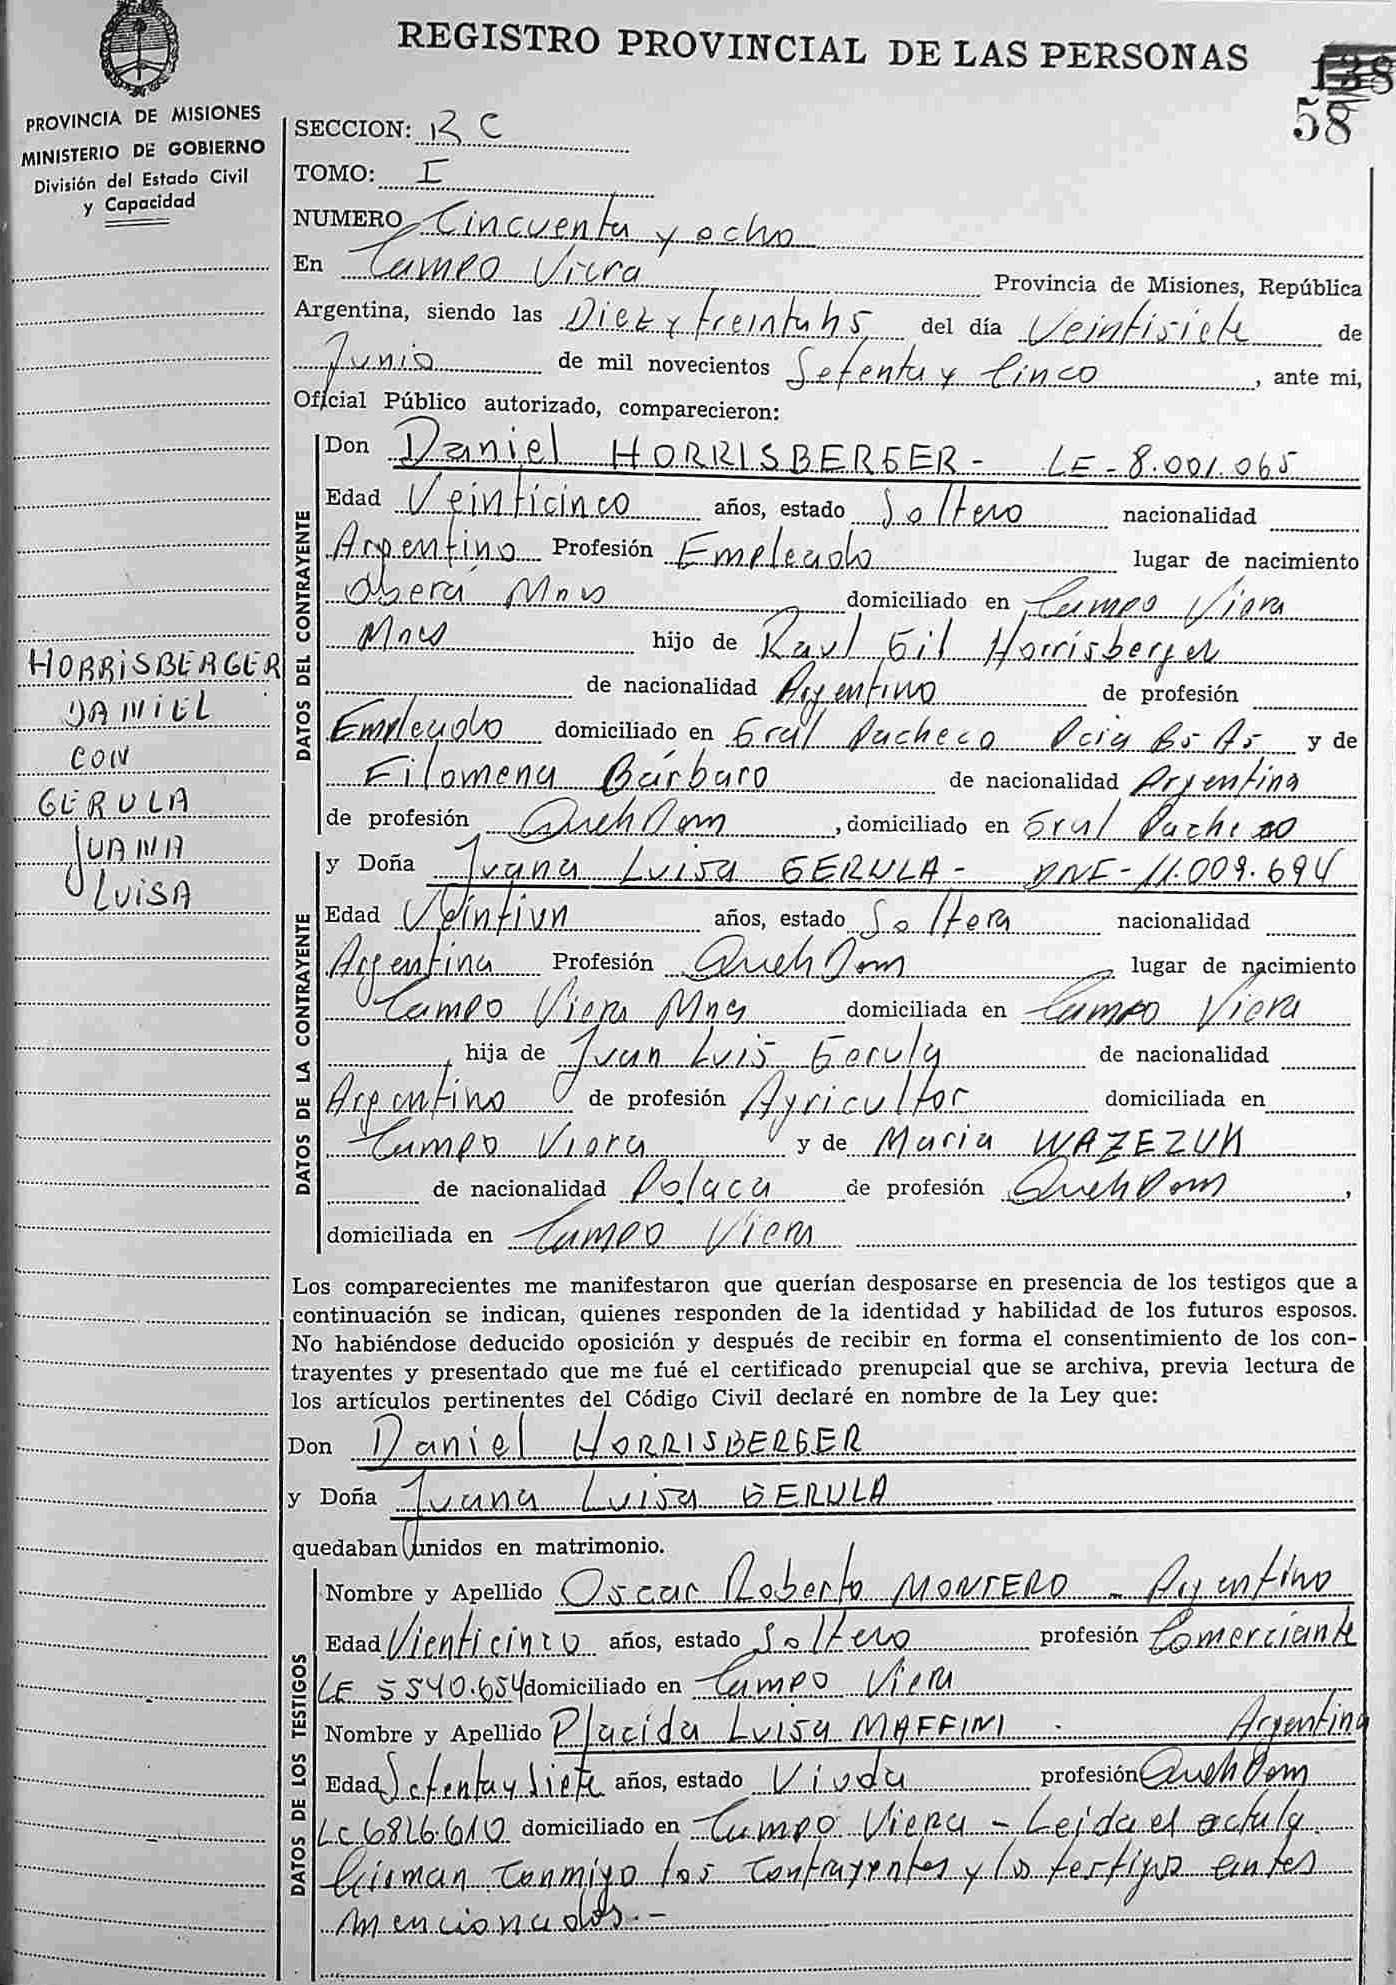 REGISTRO PROVINCIAL DE LAS PERSONAS
138
58
PROVINCIA DE MISIONES
MINISTERIO DE GOBIERNO
División del Estado Civil
y Capacidad
HORRISBERGER
DANIEL
CON
GERULA
JUANA
LUISA
SECCION: RC
TOMO: I
NUMERO Cincuenta y ocho
En Campo Viera Provincia de Misiones, República
Argentina, siendo las Diez y treinta hs del día Veintisiete de
Junio de mil novecientos Setenta y Cinco, ante mi,
Oficial Público autorizado, comparecieron:
DATOS DEL CONTRAYENTE
Don Daniel HORRISBERGER - LE - 8.001.065
Edad Veinticinco años, estado Soltero nacionalidad
Argentino Profesión Empleado lugar de nacimiento
Oberá Mnes domiciliado en Campo Viera
Mnes hijo de Raul Gil Horrisberger
de nacionalidad Argentino de profesión
Empleado domiciliado en Gral Pacheco Pcia Bs As y de
Filomena Bárbaro de nacionalidad Argentina
de profesión Queh Dom, domiciliado en Gral Pacheco
DATOS DE LA CONTRAYENTE
y Doña Juana Luisa GERULA - DNI - 11.009.694
Edad Veintiun años, estado Soltera nacionalidad
Argentina Profesión Queh Dom lugar de nacimiento
Campo Viera Mnes domiciliada en Campo Viera
, hija de Juan Luis Gerula de nacionalidad
Argentino de profesión Agricultor domiciliada en
Campo Viera y de Maria WAZEZUK
de nacionalidad Polaca de profesión Queh Dom,
domiciliada en Campo Viera
Los comparecientes me manifestaron que querían desposarse en presencia de los testigos que a
continuación se indican, quienes responden de la identidad y habilidad de los futuros esposos.
No habiéndose deducido oposición y después de recibir en forma el consentimiento de los con-
trayentes y presentado que me fué el certificado prenupcial que se archiva, previa lectura de
los artículos pertinentes del Código Civil declaré en nombre de la Ley que:
Don Daniel HORRISBERGER
y Doña Juana Luisa GERULA
quedaban unidos en matrimonio.
DATOS DE LOS TESTIGOS
Nombre y Apellido Oscar Roberto MONTERO - Argentino
Edad Vienticinco años, estado Soltero profesión Comerciante
LE 5540.654 domiciliado en Campo Viera
Nombre y Apellido Placida Luisa MAFFINI - Argentina
Edad Setenta y Siete años, estado Viuda profesión Queh Dom
LC 6826.610 domiciliado en Campo Viera - Leida el acta la
firman conmigo los contrayentes y los testigos antes
mencionados.-